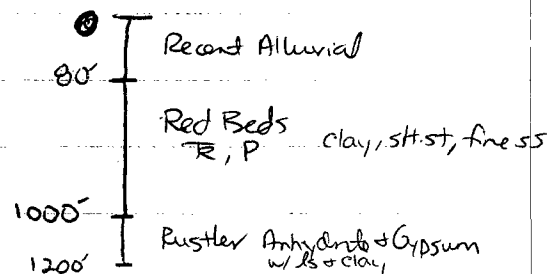 0
Recent Alluvial
80'
Red Beds clay, slt.st, fine ss
TR, P
1000'
Rustler Anhydrite & Gypsum
w/ ls & clay
1200'